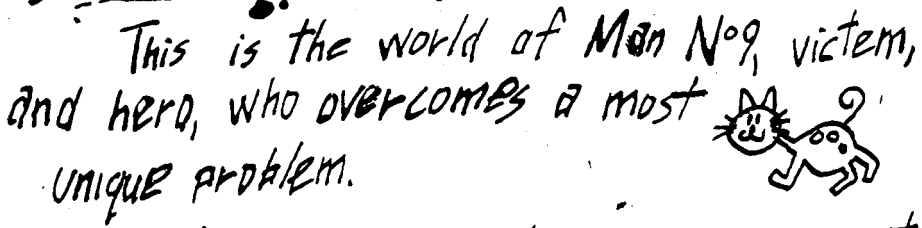 This is the world of Man Nº9, victem,
and hero, who overcomes a most
unique problem.